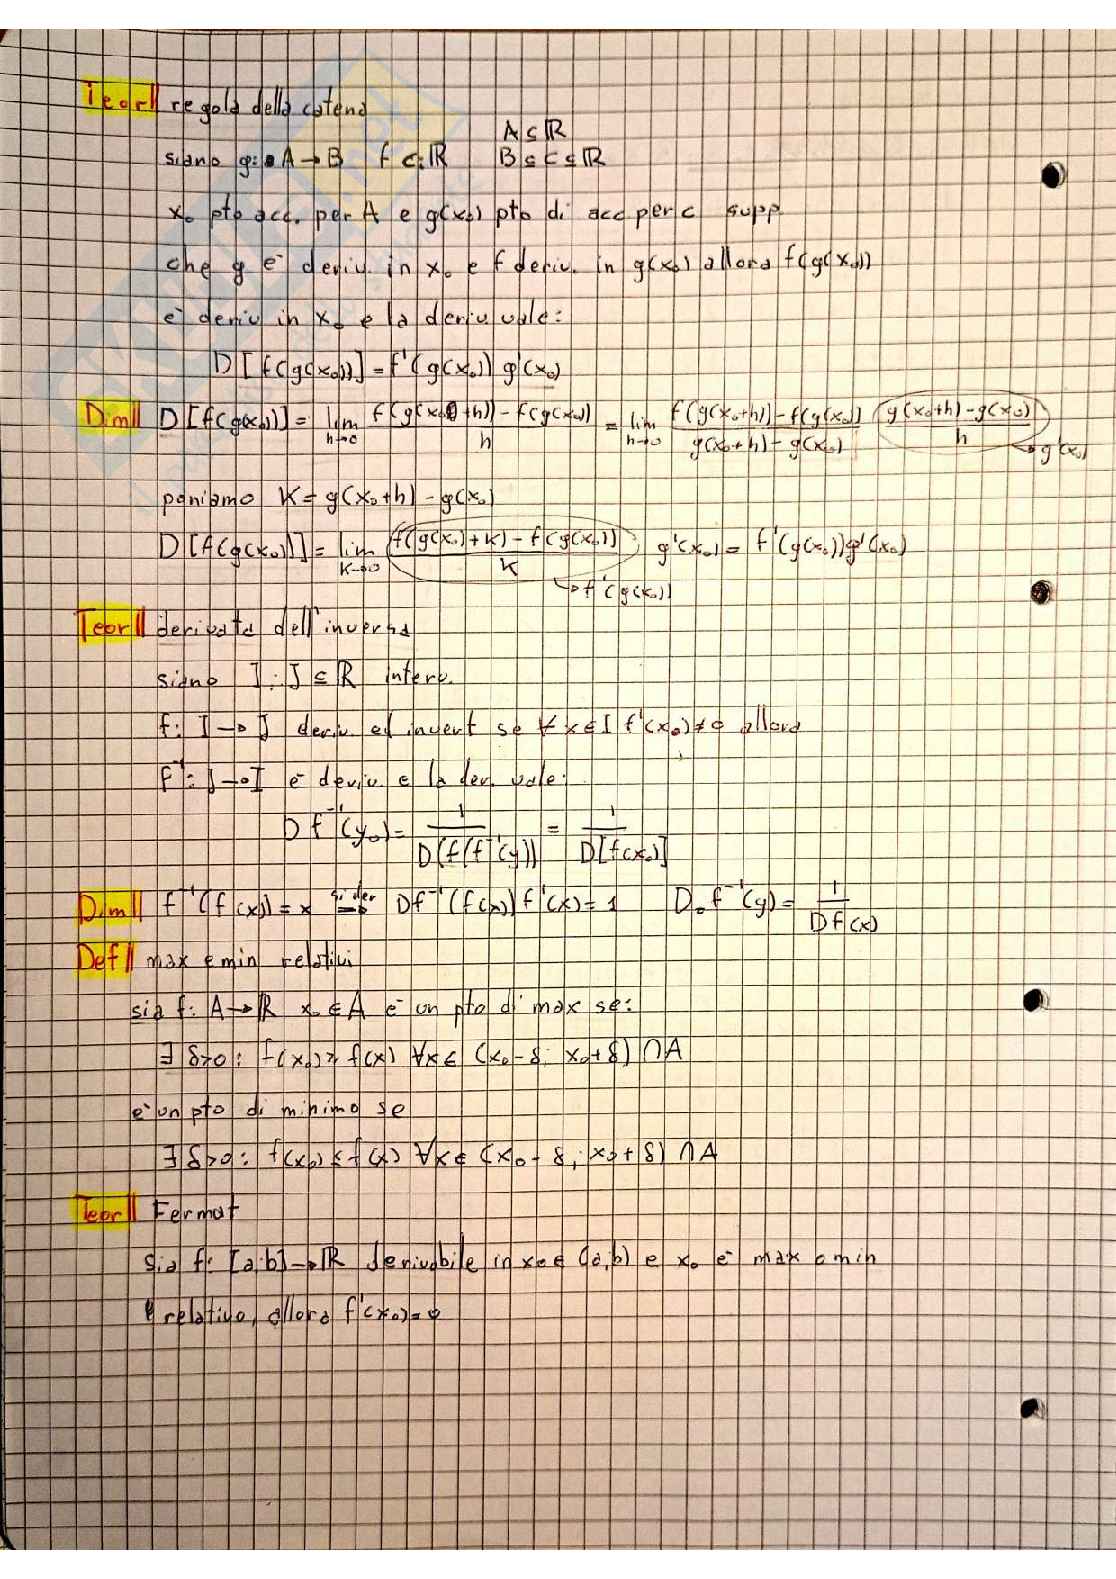 Teor regola della catena
A ⊆ ℝ
siano g: A → B f C: ℝ B ⊆ C ⊆ ℝ
x₀ pto acc. per A e g(x₀) pto di acc per c supp.
che g è deriv. in x₀ e f deriv. in g(x₀) allora f(g(x₀))
è deriv in x₀ e la deriv vale:
D[f(g(x₀))] = f'(g(x₀)) g'(x₀)
Dim D[f(g(x₀))] = lim h→0 (f(g(x₀+h)) - f(g(x₀)))/h = lim h→0 (f(g(x₀+h)) - f(g(x₀)))/(g(x₀+h) - g(x₀)) (g(x₀+h) - g(x₀))/h → g'(x₀)
poniamo K = g(x₀+h) - g(x₀)
D[f(g(x₀))] = lim K→0 (f(g(x₀)+K) - f(g(x₀)))/K g'(x₀) = f'(g(x₀)) g'(x₀)
→ f'(g(x₀))
Teor derivata dell'inversa
siano I; J ⊆ ℝ interv.
f: I → J deriv. ed invert se ∀ x ∈ I f'(x₀) ≠ 0 allora
f⁻¹: J → I è deriv. e la der. vale:
D f⁻¹(y₀) = 1/D(f(f⁻¹(y)) = 1/D[f(x₀)]
Dim f⁻¹(f(x)) = x si der ⇒ Df⁻¹(f(x)) f'(x) = 1 D. f⁻¹(y) = 1/Df(x)
Def max e min relativi
sia f: A → ℝ x₀ ∈ A è un pto di max se:
∃ δ>0: f(x₀) ≥ f(x) ∀x ∈ (x₀-δ; x₀+δ) ∩ A
è un pto di minimo se
∃ δ>0: f(x₀) ≤ f(x) ∀x ∈ (x₀-δ; x₀+δ) ∩ A
Teor Fermat
Sia f: [a;b] → ℝ derivabile in x₀ ∈ (a,b) e x₀ è max o min
relativo, allora f'(x₀) = 0